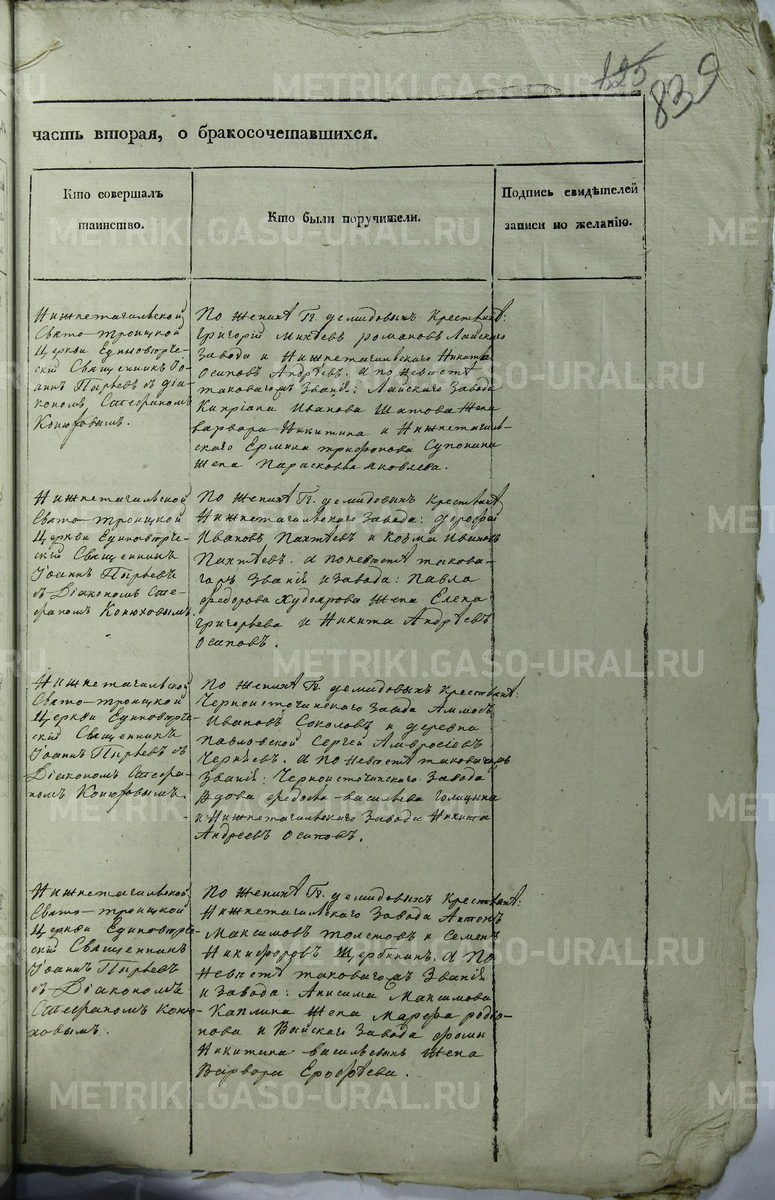 125
839
часть вторая, о бракосочетавшихся.
Кто совершалъ
таинство.
Кто были поручители.
Подпись свидѣтелей
записи по желанію.
Нижнетагильской
Свято-троицкой
Церкви Единовѣрче-
скій Священникъ Іо-
аннъ Пырьевъ съ діа-
кономъ Стефаномъ
Конюховымъ.
По женихѣ Гг. демидовыхъ крестьянѣ:
Григорій романовъ Лайскаго
Завода и Нижнетагильскаго Никита
Осиповъ Андрѣевъ. а по невѣстѣ
таковагожъ Званія: Лайскаго Завода
Кипріана Иванова Шатова Жена
варвара Никитина и Нижнетагиль-
скаго Ермила трифонова
Жена Парасковья Яковлева.
Нижнетагильской
Свято-троицкой
Церкви Единовѣрче-
скій Священникъ
Іоаннъ Пырьевъ
съ Діакономъ Сте-
фаномъ Конюховымъ.
По женихѣ Гг. демидовыхъ крестьянѣ
Нижнетагильскаго Завода: дорофей
Ивановъ и Козма Ивановъ
а поневѣстѣ такова-
гожъ Званія изавода: Павла
федорова Худоярова Жена Елена
григорьева и Никита Андрѣевъ
Осиповъ.
Нижнетагильской
Свято-троицкой
Церкви Единовѣрче-
скій Священникъ
Іоаннъ Пырьевъ съ
Діакономъ Стефа-
номъ Конюховымъ.
По женихѣ Гг. демидовыхъ крестьянѣ:
Черноисточинскаго Завода Аммосъ
Ивановъ Соколовъ и деревни
Павловской Сергей Амвросіевъ
а по невѣстѣ таковагожъ
Званія: Черноисточинскаго Завода
Вдова федосья васильева голицына
и Нижнетагильскаго Завода Никита
Андреевъ Осиповъ.
Нижнетагильской
Свято-троицкой
Церкви Единовѣрче-
скій Священникъ
Іоаннъ Пырьевъ
съ Діакономъ
Стефаномъ Коню-
ховымъ.
По женихѣ Гг. демидовыхъ крестьянѣ:
Нижнетагильскаго Завода Антонъ
Максимовъ толстовъ и Семенъ
Никифоровъ Щербининъ. а По
Невѣстѣ таковагожъ Званія
и Завода: Анисима Максимова
Каплина Жена Марфа родіо-
нова и Выйскаго Завода фомы
Никитина васильевыхъ Жена
Варвара Ерофѣева.
METRIKI.GASO-URAL.RU